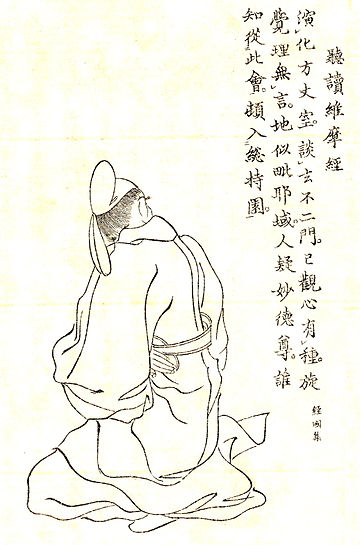 聽讀維摩經
演化方丈室。談玄不二門。已觀心有種。旋
覺理無言。地似毗耶域。人疑妙德尊。誰
知從此會。頓入総持園。
經國集